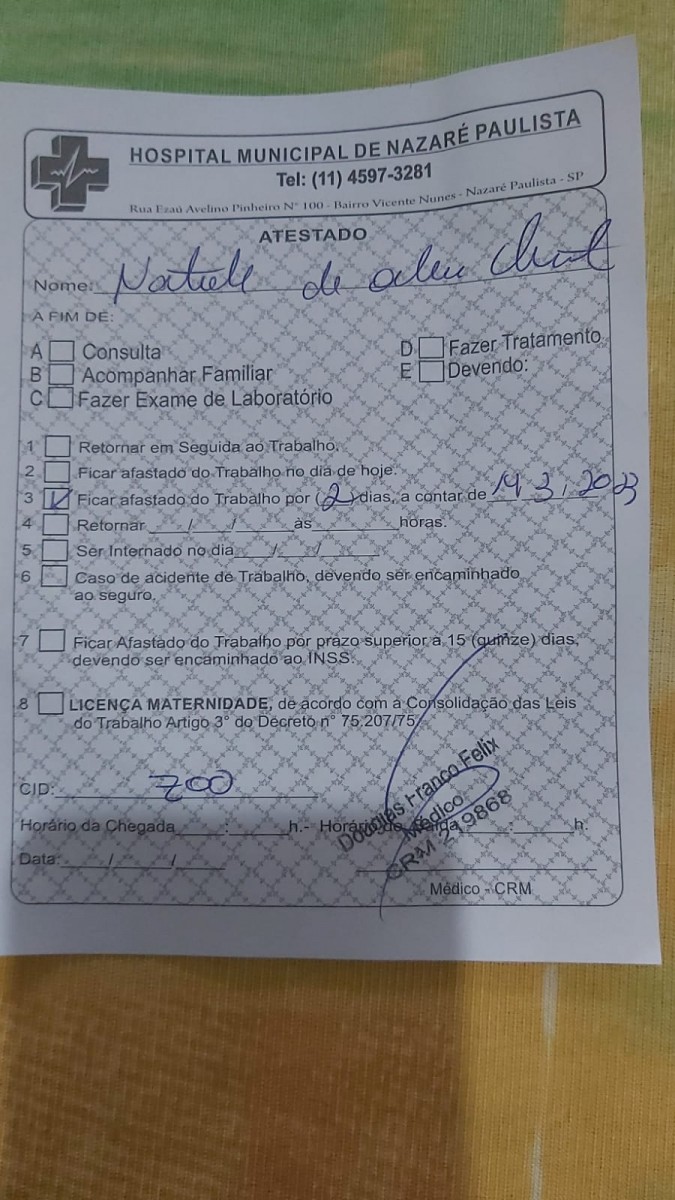 HOSPITAL MUNICIPAL DE NAZARÉ PAULISTA
Tel: (11) 4597-3281
Rua Ezaú Avelino Pinheiro N° 100 - Bairro Vicente Nunes - Nazaré Paulista - SP
ATESTADO
Nome: de
A FIM DE:
A Consulta
B Acompanhar Familiar
C Fazer Exame de Laboratório
D Fazer Tratamento
E Devendo:
1 Retornar em Seguida ao Trabalho.
2 Ficar afastado do Trabalho no dia de hoje.
3 Ficar afastado do Trabalho por (2) dias, a contar de
4 Retornar / / às horas.
5 Ser Internado no dia / /
6 Caso de acidente de Trabalho, devendo ser encaminhado
ao seguro.
7 Ficar Afastado do Trabalho por prazo superior a 15 (quinze) dias,
devendo ser encaminhado ao INSS.
8 LICENÇA MATERNIDADE, de acordo com a Consolidação das Leis
do Trabalho Artigo 3° do Decreto n° 75.207/75
CID: Z00
Horário da Chegada : h.- Horário de : h.
Douglas Franco Felix
Médico
CRM 219868
Data: / /
Médico - CRM